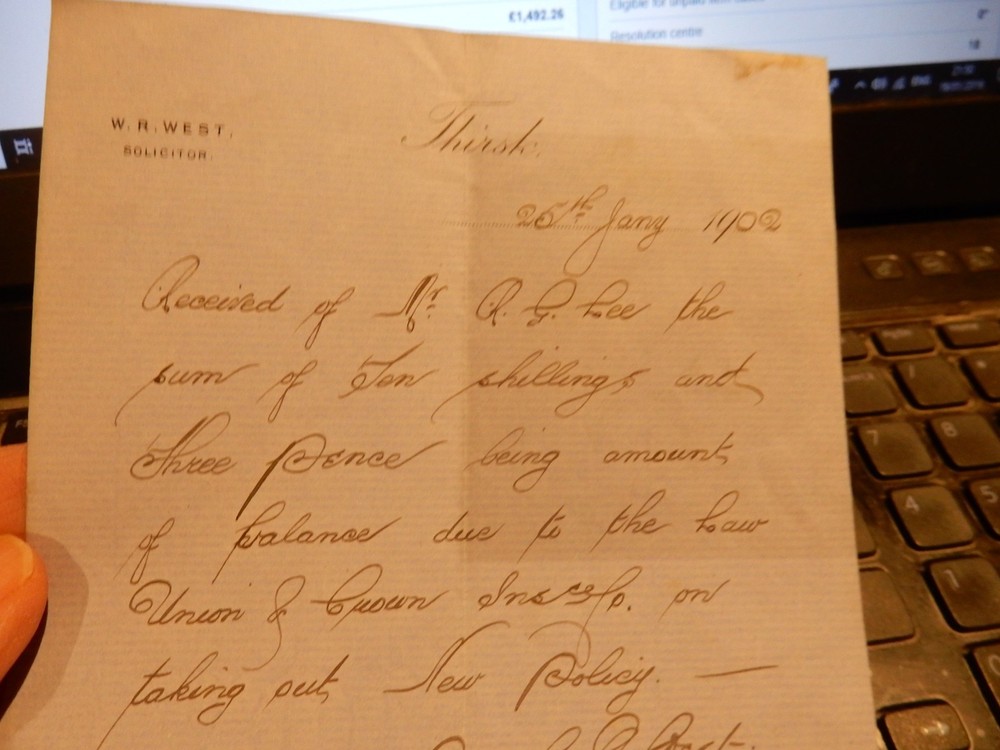 £1,492.26
Resolution centre
18
W. R. WEST,
SOLICITOR.
Thirsk,
25th Jany 1902
Received of Mr. R. G. Lee the
sum of Ten shillings and
Three pence being amount
of balance due to the Law
Union & Crown Insce Co. on
taking out New Policy. —
7
8
4
5
1